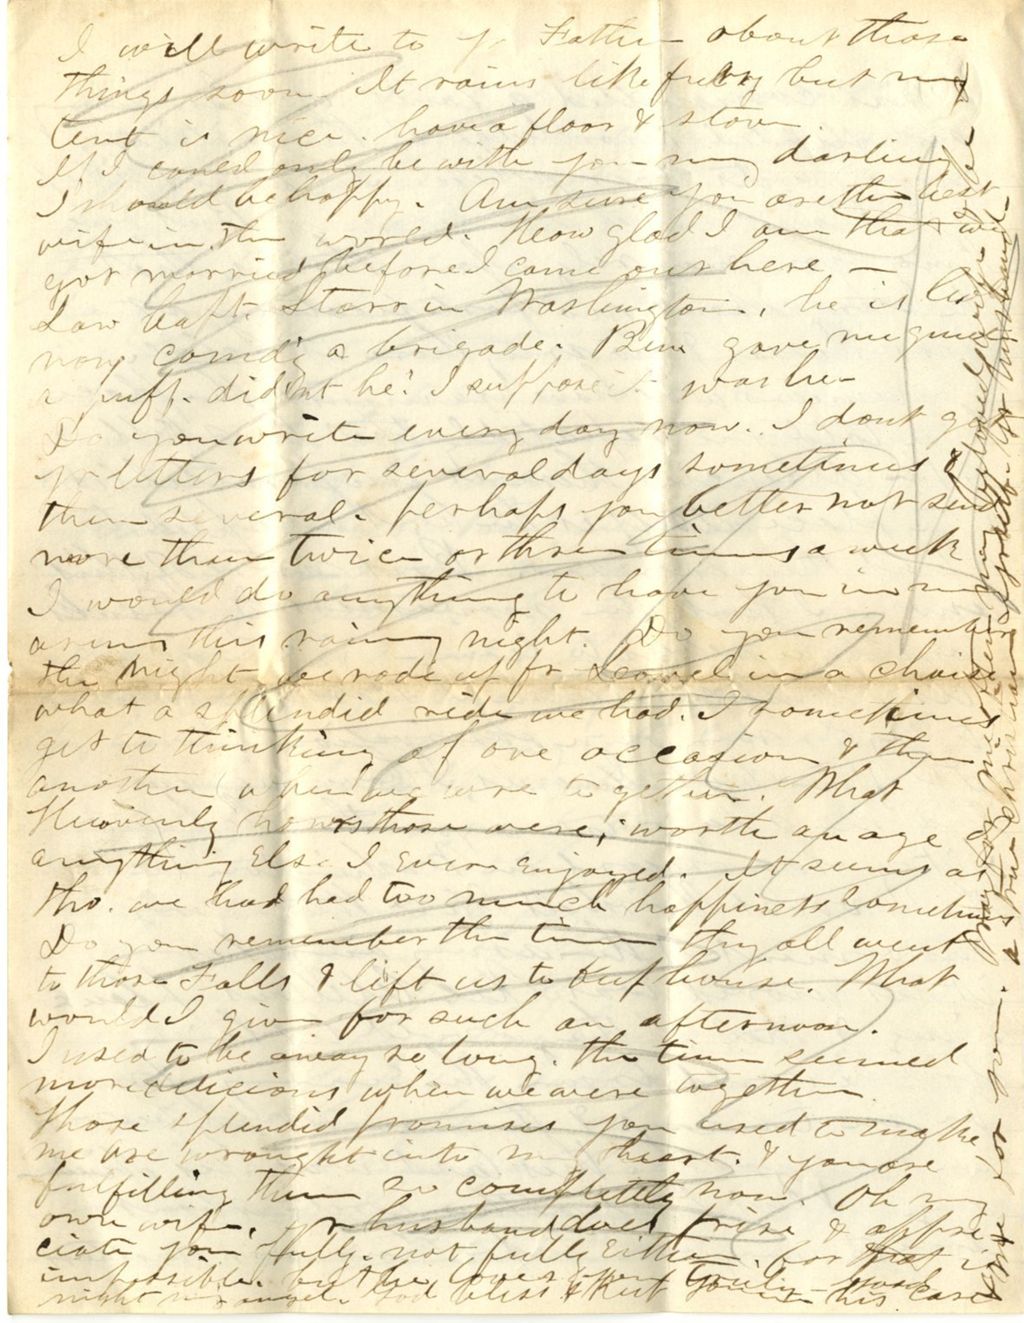 I will write to yr Father about those
things soon. It rains like fury but my
tent is nice. have a floor & stove.
If I could only be with you my darling
I should be happy. Am sure you are the best
wife in the world. How glad I am that we
got married before I came out here –
Saw Capt. Starr in Washington, he is
now comdg a brigade. Ben gave me quite
a puff. didnt he? I suppose it was he–
Do you write every day now. I dont get
yr letters for several days sometimes &
then several. perhaps you better not send
more than twice or three times a week
I would do anything to have you in my
arms this rainy night. Do you remember
the night we rode up fr in a chaise
what a splendid ride we had. I sometimes
get to thinking of one occasion & then
another when we were together. What
Heavenly hours those were; worth an age of
anything else I ever enjoyed. It seems as
tho. we had had too much happiness sometimes
Do you remember the time they all went
to those Falls & left us to keep house. What
would I give for such an afternoon.
I used to be away so long. the time seemed
more delicious when we were together.
Those splendid promises you used to make
me are wrought into my heart. & you are
fulfilling them so completely now. Oh my
own wife. yr husband does prize & appre-
ciate you fully. not fully either for that is
impossible. but he loves you truly. Good
night my angel. God bless & keep you in his care
& me for you. Pray for me often my
a true christian & yr husband